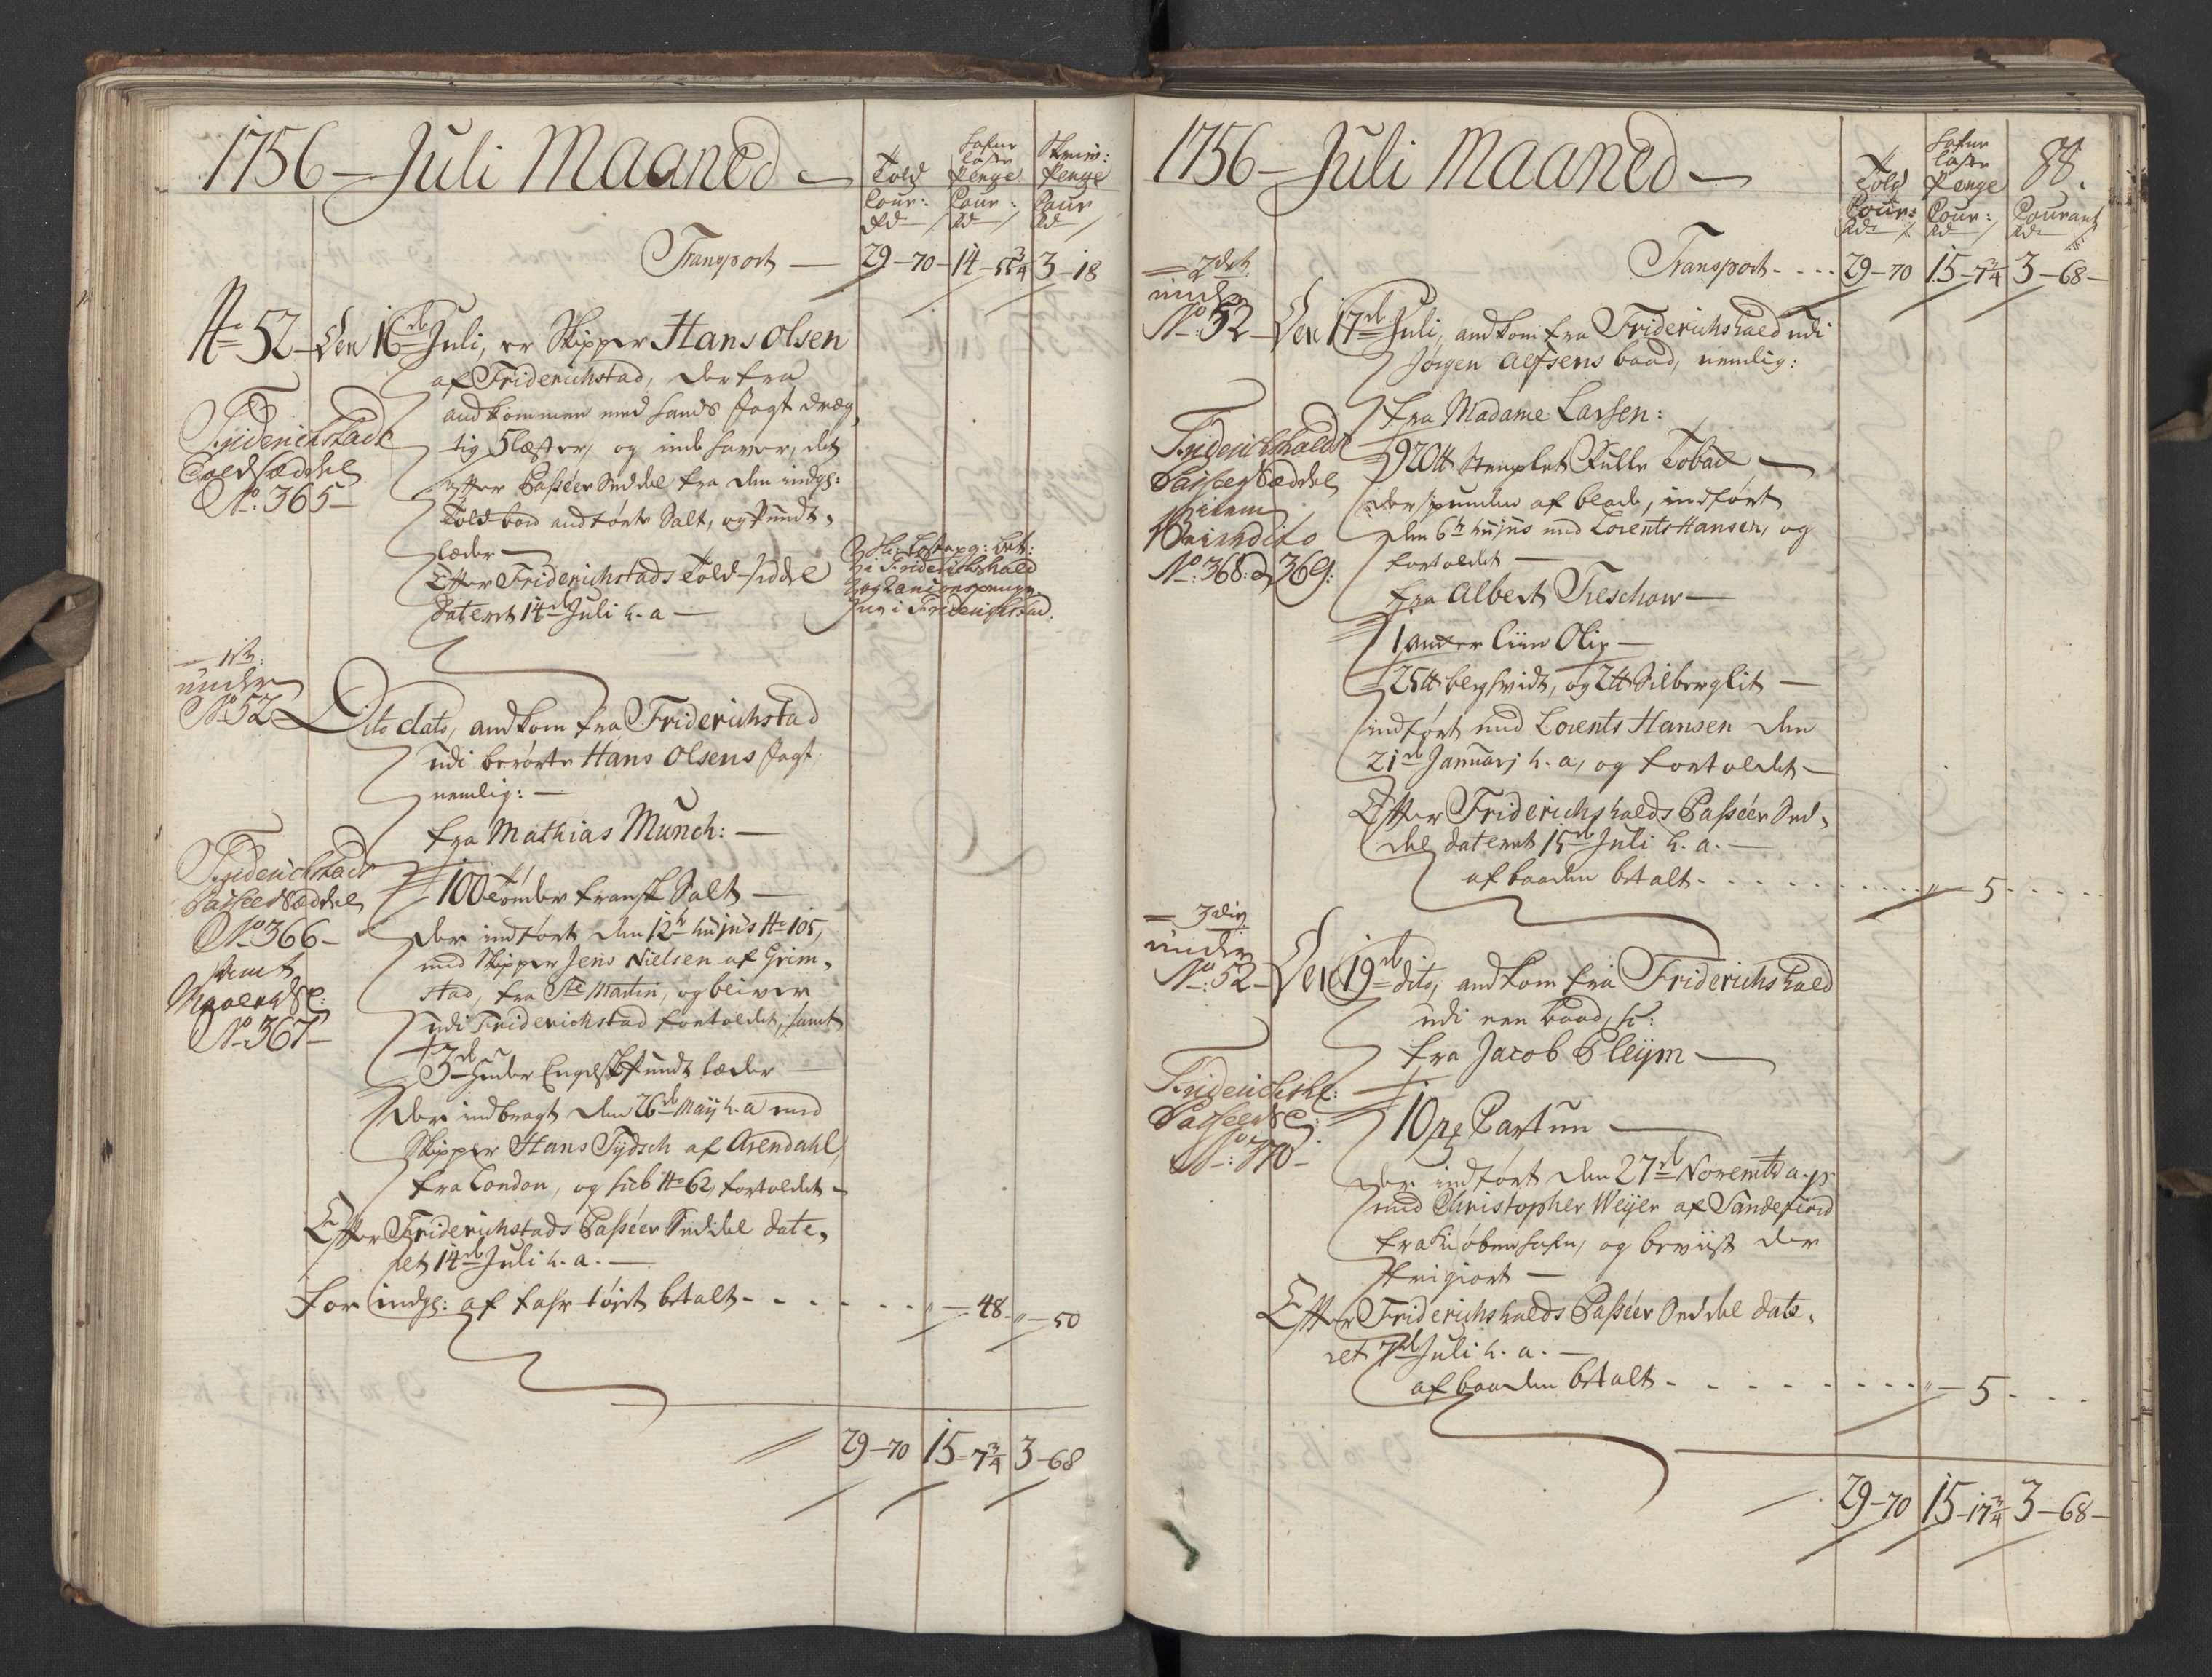 1756 – Juli Maaned –
Told
Cour:
Rd
Hafne
læste
Penge
Cour:
Rd
Penge
Cour
Rd
Transport — 29–70 14–55 3/4 3–18
No 52 – Den 16de Juli, er Skipper Hans Olsen
af Friderichstad, der fra
andkommen med hands Jagt dræg,
tig 5 læster, og inde haver, det
efter Passéer Seddel fra den indgb:
Told bod andførte Salt, og Pundt,
læder —
Efter Friderichstads Told-sedde
dateret 14de Juli h. a —
Friderichstads
Toldsæddel
No. 365 –
i Friderichshald
i Friderichstad.
— 1te:
under
No. 52
Dito dato, andkom fra Friderichstad
udi berørte Hans Olsens Jagt
nemlig: —
fra Mathias Münch: —
100 tønder fransk Salt —
der indført den 12te hujus No 105,
med Skipper Jens Nielsen af Grim,
stad, fra Ste Martin, og bleven
udi Friderichstad fortoldet, samt
3de Huder Engelsk Pundt læder —
der indbragt den 26de Maij h. a med
Skipper Hans Tÿdsch af Arendahl,
fra London, og sub No 62, fortoldet –
Efter Friderichstads Passéer Seddel date,
ret 14de Juli h. a. —
For indgb: af fahrtøjet betalt - - - - - - „ — 48 - „ — 50
Friderichstads
Passeersæddel
No 366 –
samt
No. 367 –
29–70 15–7 3/4 3–68
1756 – Juli Maaned —
Told
Cour:
Rd
Hafne
læste
Penge
Cour:
Rd
88.
Courant
Rd
Transport - - - - 29–70 15–7 3/4 3–68 –
— 2det
under
No. 52 – Den 17de Juli, andkom fra Friderichshald udi
Jørgen Alfsens baad, nemlig:
fra Madame Larsen:
920 ℔ Stemplet Rulle Tobak —
der spunden af blade, indført
den 6te hujus med Lorents Hansen, og
fortoldet —
fra Albert Treschow —
1 anker Liin Olie —
25 ℔ blyhvidt, og 2 ℔ Silberglit —
indført med Lorents Hansen den
21de Januarj h. a, og fortoldet —
Efter Friderichshalds Passéer Sed,
del dateret 15de Juli h. a. —
af baaden betalt - - - - - - „ — 5 - - - -
Friderichshalds
Passeersæddel
No: 368: & 369:
— 3die
under
No: 52 – Den 19de dito, andkom fra Friderichshald
udi een baad, sc:
fra Jacob Pleÿm —
10 ps Cartun —
der indført den 27de Novembr a. p.
med Christopher Weÿer af Sandefiord
fra Kiøbenhafn, og beviist der
friegiort —
Efter Friderichshalds Passéer Seddel date,
ret 7de Juli h. a. —
af baaden betalt - - - - - - „ — 5 - - -
Friderichsh:
Passeers:
No: 370 –
29–70 15–17 3/4 3–68 –